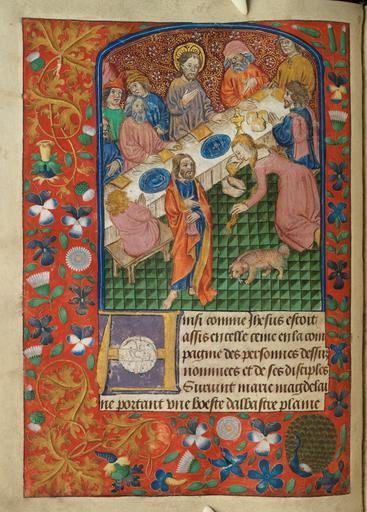 Ainsi comme Jhesus estoit
assis en celle cene en la com
paignie des personnes dessus
nommees et de ses disciples
Survint marie magdelai
ne portant vne boeste dalbastre plaine